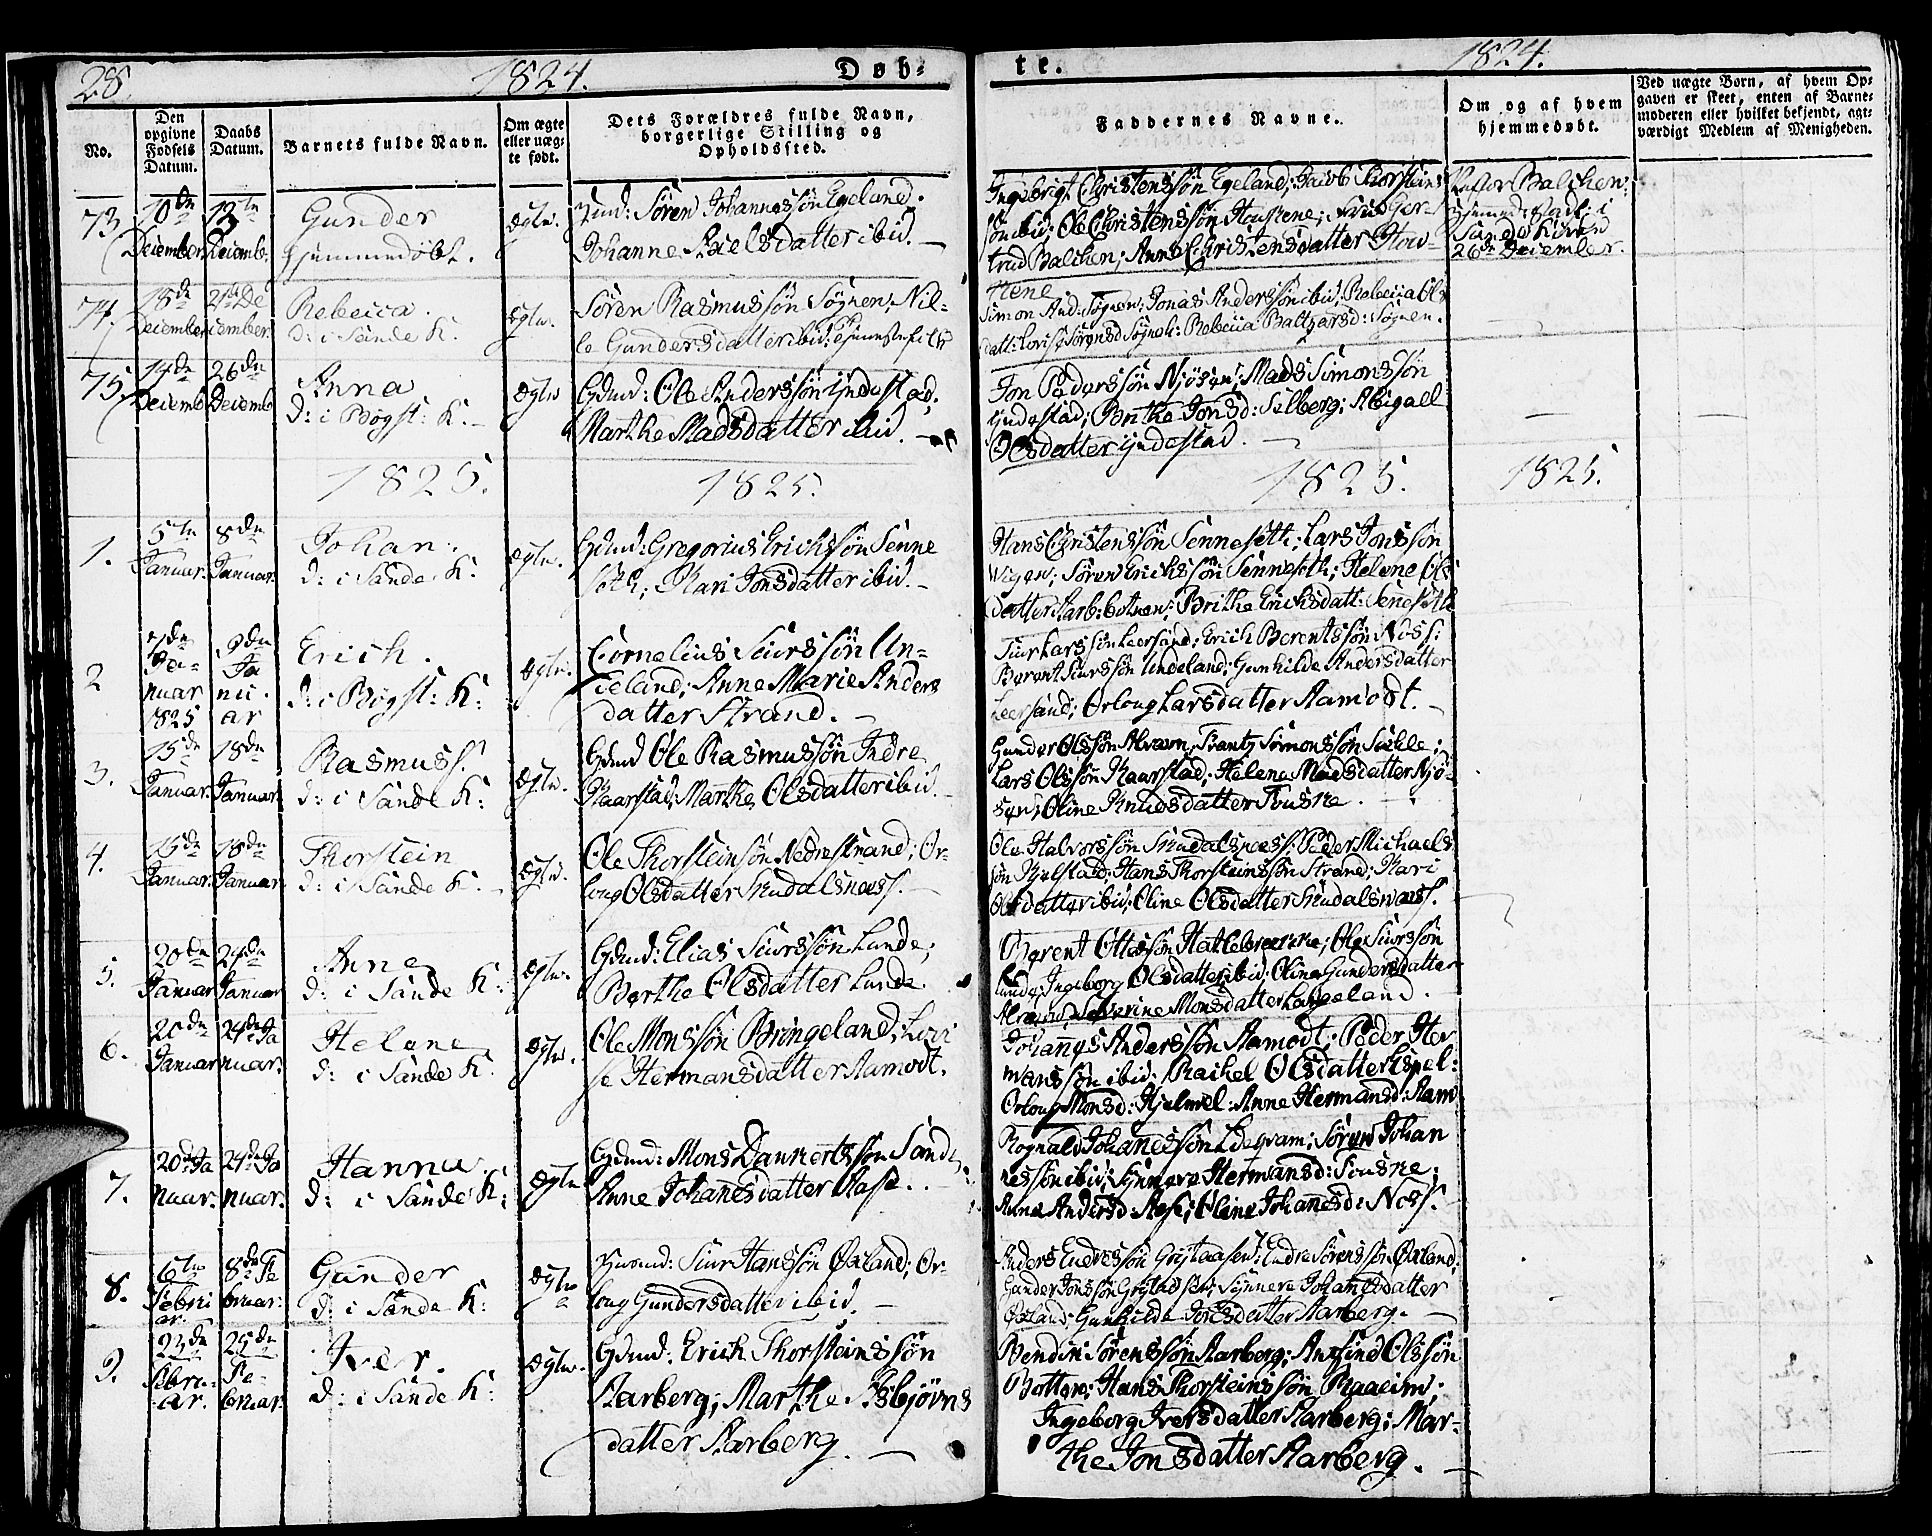 28.
1824.
Døb-
te.
1824.
No.
Den opgivne Fødsels Datum.
Daabs Datum.
Barnets fulde Navn.
Om ægte eller uægte født.
Dets Forældres fulde Navn, borgerlige Stilling og Opholdssted.
Faddernes Navne.
Om og af hvem hjemmedøbt.
Ved uægte Børn, af hvem Opgaven er skeet, enten af Barnemoderen eller hvilket bekjendt, agtværdigt Medlem af Menigheden.
73.
10de December
Gunder
hjemmedøbt.
ægte.
Søren Johannessøn Egeland.
Johanne Axelsdatter ibid. —
Ingebrigt Christenssøn Egeland; Jacob Thorstens
søn ibid; Ole Christenssøn
trud Balchen; Anne Christensdatter
Pastor Balchen
26de December.
74.
18de December
Rebecca.
d: i Sande K.
ægte.
Søren Rasmussøn Sygnen; Nil-
le Gundersdatter ibid:
Simon And: Sygnen; Jonas Anderssøn ibid; Rebecca Ols
datt: Lovise Sørensd Sygnen: Rebecca Baltzarsd: Sygnen.
75.
14de Decemb
26de Decemb
Anna
d: i Bygst: K. —
ægte
Gdmd: Ole Anderssøn Yndestad;
Marthe Madsdatter ibid. —
Jon Pedersøn Njøsen; Mads Simonssøn
Yndestad; Brithe Jonsd: Selberg; Abigael
Olsdatter Yndestad. —
1825.
1825.
1825.
1825.
1.
5te Januar.
8de Januar.
Johan.
d: i Sande K:
ægte.
Gdmd: Gregorius Erichssøn Senne
seth; Kari Jonsdatter ibid. —
Hans Christenssøn Senneseth; Lars Jonssøn
Wigen; Søren Erichssøn Senneseth; Helene Ols
datter Aarbotnen; Brithe Erichsdatt: Senneseth
2
7de Ja-
nuar
1825
9de Ja
nu
ar
Erich.
d: i Bygst: K:
ægte.
Cornelius Siurssøn Un-
deland; Anne Marie Anders
datter Strand. —
Siur Larssøn Leersand; Erich Berentssøn Ness:
Berent Siurssøn Undeland; Gunhilde Andersdatter
Leersand; Orloug Larsdatter Aamodt. —
3.
15de Januar.
18de Januar.
Rasmus.
d: i Sande K:
ægte.
Gdmd Ole Rasmussøn Indre
Kaarstad; Marthe Olsdatter ibid. —
Gunder Olssøn Alræn; Frantz Simonssøn
Lars Olssøn Kaarstad; Helene Madsdatter Njø-
sen; Oline Knudsdatter
4.
15de Januar.
18de Januar.
Thorstein
d: i Sande K. —
ægte.
Ole Thorsteinsøn Nedrestrand; Or-
loug Olsdatter Skudalsnæss. —
Ole Halvorssøn Skudalsnæss; Peder Michaels
søn Kjelstad; Hans Thorsteinssøn Strand; Kari
Olsdatter ibid; Oline Olsdatter Skudalsnæss.
5.
20de Januar
24de Januar
Anne
d: i Sande K:
ægte.
Gdmd: Elias Siurssøn Lunde;
Berthe Olsdatter Lunde.
Berent Ottessøn Hatlebrecke; Ole Siurssøn
Lunde; Ingeborg Olsdatter ibid; Oline Gundersdatter
Severine Monsdatter Langeland.
6.
20de Januar
24de Januar.
Helene
d: i Sande K.
ægte.
Ole Monssøn Bringeland; Lovi
se Hermansdatter Aamodt.
Johannes Anderssøn Aamodt; Peder Her
manssøn ibid. Rachel Olsdatter Espel:
Orloug Monsd: Hjelmel: Anne Hermansd: Aam
7.
20de Ja
nuar.
24de Ja
nuar.
Hanna
d: i Sande K:
ægte.
Gdmd: Mons Dankertssøn Sande;
Anne Johannesdatter Aase. —
Rognald Johannessøn Lidegram; Søren Johan
nessøn ibid; Synneve Hermansd:
Anne Andersd: Aase; Oline Johannesd: Ness.
8.
6te Febru
ar.
8de Fe
bruar:
Gunder
d: i Sande K:
ægte
Siur Hanssøn Øxland; Or-
loug Gundersdatter ibid. —
Anders Endressøn Grytaasen; Endre Sørenssøn Øxland;
Gunder Jonssøn Grytaasen; Synneve Johannesdatter
Øxland; Gunhilde Jonsdatter Aarberg. —
9.
23de Febru-
ar.
25de Fe-
bruar.
Iver.
d: i Sande K:
ægte.
Gdmd: Erich Thorsteinssøn
Aarberg; Marthe Asbjørns
datter Aarberg. —
Bendix Sørenssøn Aarberg; Anfind Olssøn
Botten; Hans Thorsteinssøn Raaeim;
Ingeborg Iversdatter Aarberg; Mar-
the Jonsdatter Aarberg. —